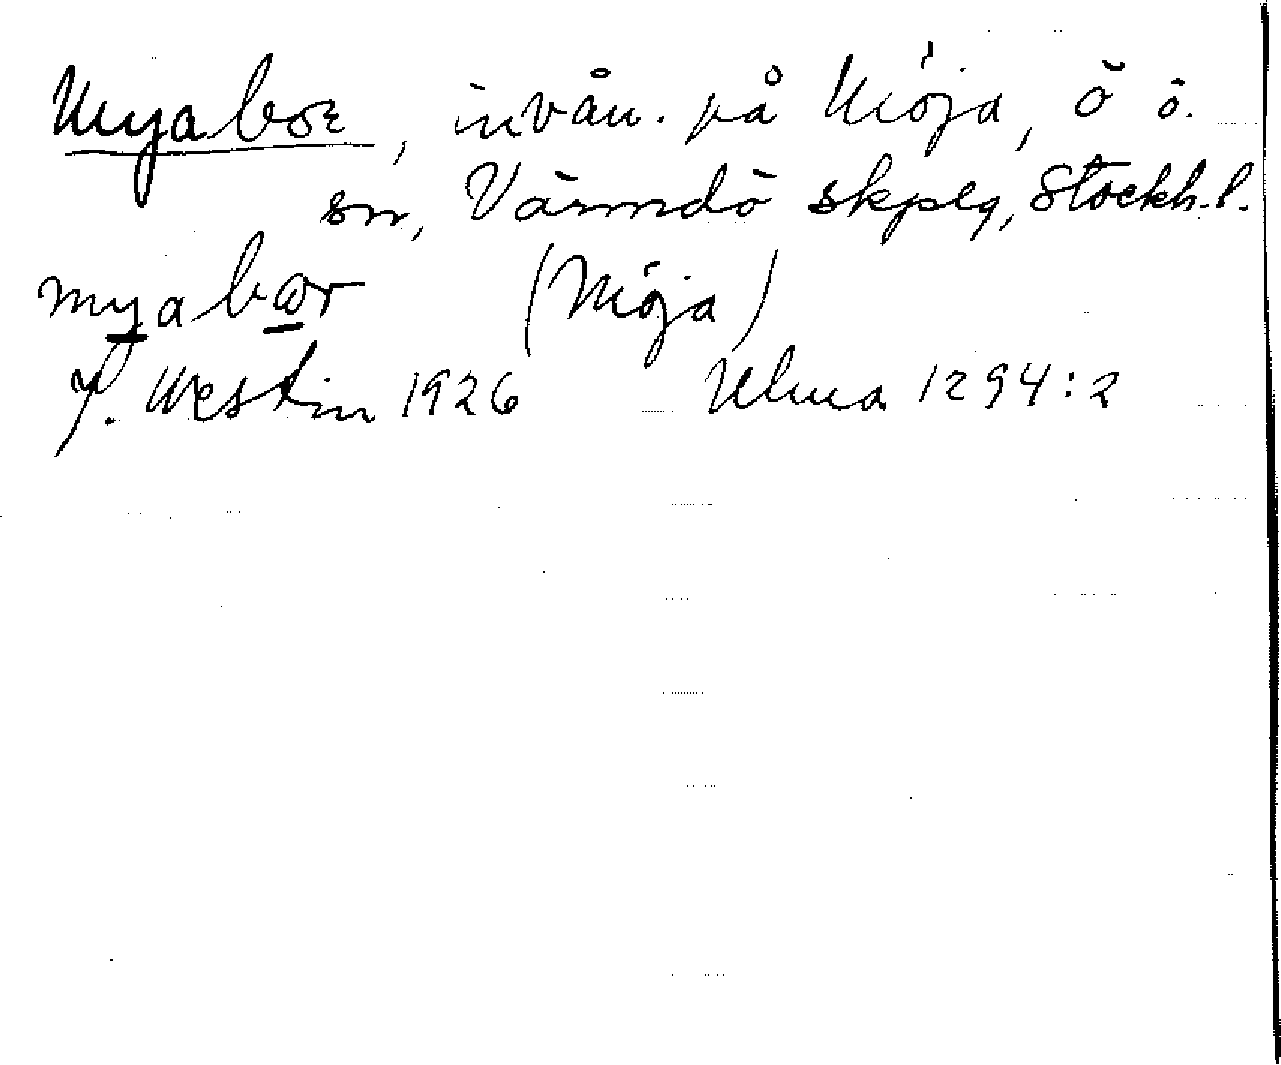 Myaboe, invån. på Möja, ö ö.
sn, Värmdö skplg, Stockh. l.
myabœr (Möja)
J. Westin 1926 Ulma 1294:2